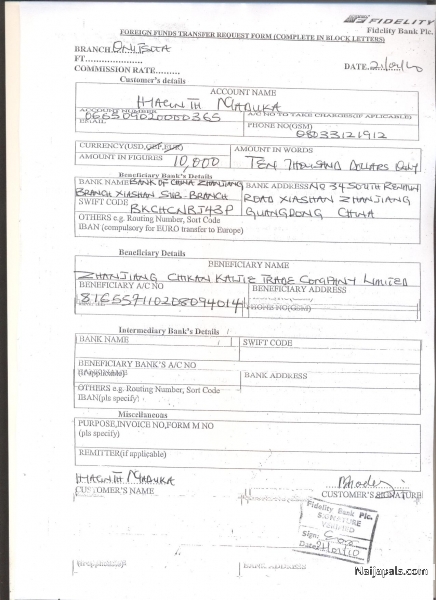 FIDELITY
Fidelity Bank Plc.
FOREIGN FUNDS TRANSFER REQUEST FORM (COMPLETE IN BLOCK LETTERS)
BRANCH
FT
COMMISSION RATE
DATE
Customer's details
ACCOUNT NAME
ACCOUNT NUMBER
0665090200000365
A/C NO TO TAKE CHARGES(IF APLICABLE)
EMAIL
PHONE NO(GSM)
08033121912
CURRENCY(USD,GBP,EUR)
AMOUNT IN WORDS
AMOUNT IN FIGURES 10,000
TEN THOUSAND DOLLARS ONLY
Beneficiary Bank's Details
BANK NAME BANK OF CHINA ZHANJIANG
BRANCH XIASHAN SUB-BRANCH
BANK ADDRESS NO 34 SOUTH
ROAD XIASHAN ZHANJIANG
GUANGDONG CHINA
SWIFT CODE BKCHCNBJ43P
OTHERS e.g. Routing Number, Sort Code
IBAN (compulsory for EURO transfer to Europe)
Beneficiary Details
BENEFICIARY NAME
ZHANJIANG CHIKAN KAIJIE TRADE COMPANY LIMITED
BENEFICIARY A/C NO
BENEFICIARY ADDRESS
81655597110208094014
PHONE NO(GSM)
Intermediary Bank's Details
BANK NAME
SWIFT CODE
BENEFICIARY BANK'S A/C NO
(if applicable)
BANK ADDRESS
OTHERS e.g. Routing Number, Sort Code
IBAN(pls specify)
Miscellaneous
PURPOSE,INVOICE NO,FORM M NO
(pls specify)
REMITTER(if applicable)
CUSTOMER'S NAME
CUSTOMER'S SIGNATURE
Fidelity Bank Plc.
SIGNATURE
VERIFIED
Sign:
Date:
BANK ADDRESS
Naijapals.com